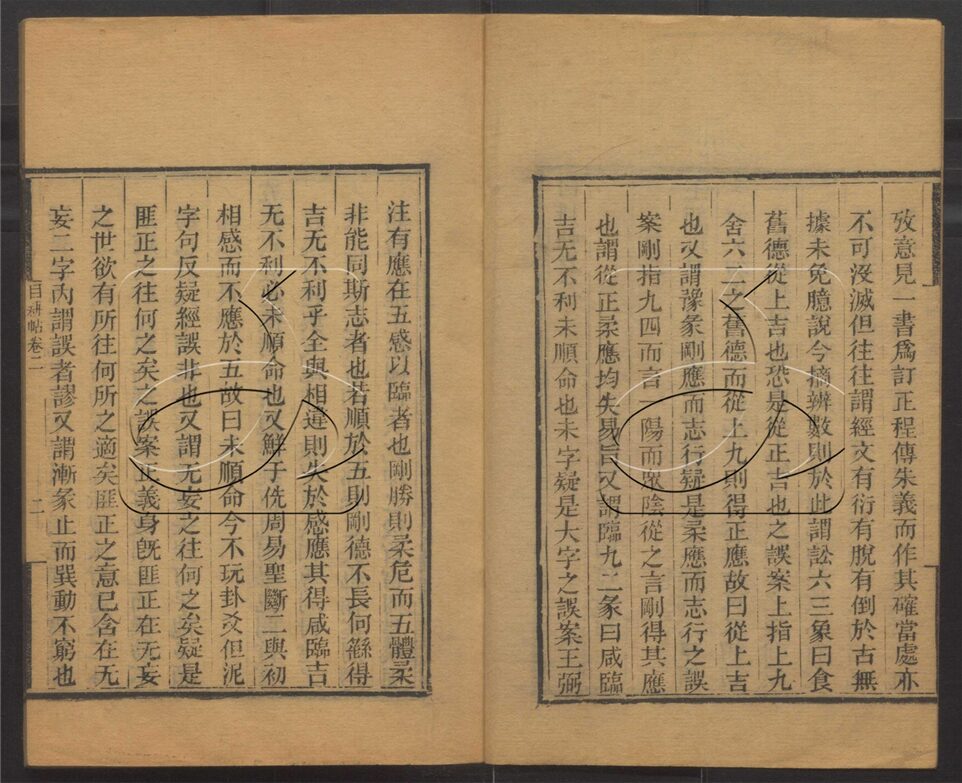 攷意見一書爲訂正程傳朱義而作其確當處亦
不可沒滅但往往謂經文有衍有脫有倒於古無
據未免臆說今摘辨數則於此謂訟六三象曰食
舊德從上吉也恐是從正吉也之誤案上指上九
舍六二之舊德而從上九則得正應故曰從上吉
也又謂豫彖剛應而志行疑是柔應而志行之誤
案剛指九四而言一陽而眾陰從之言剛得其應
也謂從正柔應均失易旨又謂臨九二象曰咸臨
吉无不利未順命也未字疑是大字之誤案王弼
注有應在五感以臨者也剛勝則柔危而五體柔
非能同斯志者也若順於五則剛德不長何繇得
吉无不利乎全與相違則失於感應其得咸臨吉
无不利必未順命也又鮮于侁周易聖斷二與初
相感而不應於五故曰未順命今不玩卦爻但泥
字句反疑經誤非也又謂无妄之往何之矣疑是
匪正之往何之矣之誤案正義身旣匪正在无妄
之世欲有所往何所之適矣匪正之意已含在无
妄二字內謂誤者謬又謂漸彖止而巽動不窮也
目耕帖卷二
二